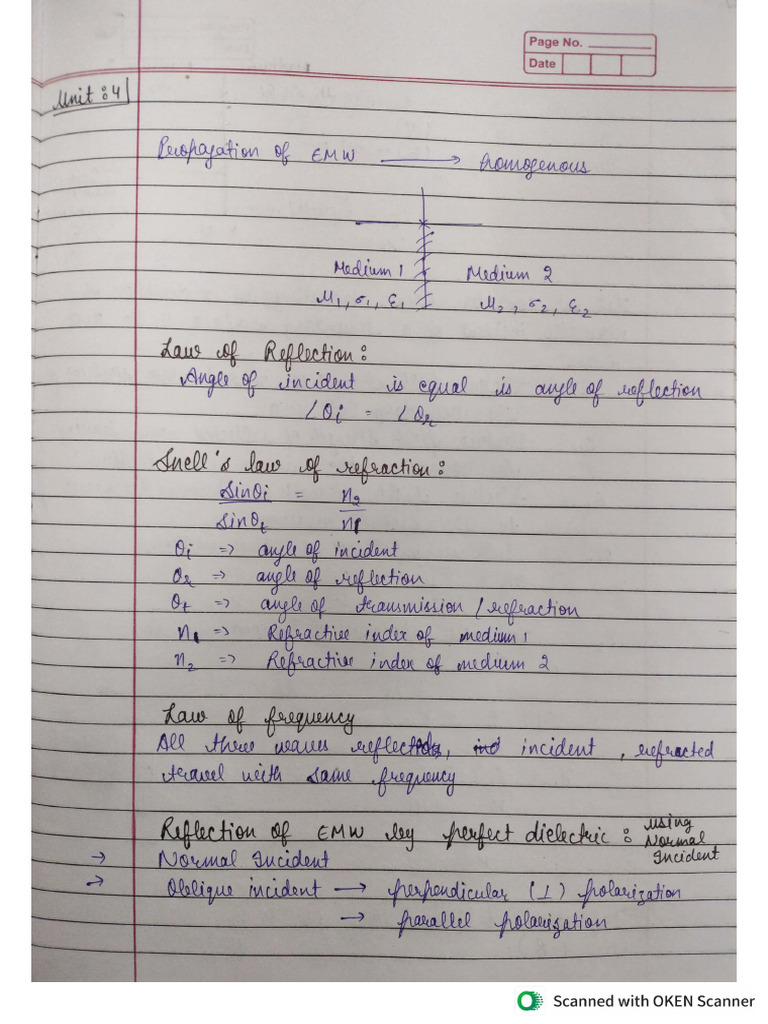 Page No.
Date
Unit:4
Propagation of EMW → homogenous
Medium 1 Medium 2
μ1, σ1, ε1 μ2, σ2, ε2
Law of Reflection:
Angle of incident is equal is angle of reflection
∠θi = ∠θr
Snell's law of refraction:
Sinθi = n2
Sinθt n1
θi => angle of incident
θr => angle of reflection
θt => angle of transmission / refraction
n1 => Refractive index of medium 1
n2 => Refractive index of medium 2
Law of frequency
All three waves reflected, incident, refracted
travel with same frequency
Reflection of EMW by perfect dielectric : using
Normal
Incident
→ Normal Incident
→ Oblique incident → perpendicular (⊥) polarization
→ parallel polarization
Scanned with OKEN Scanner